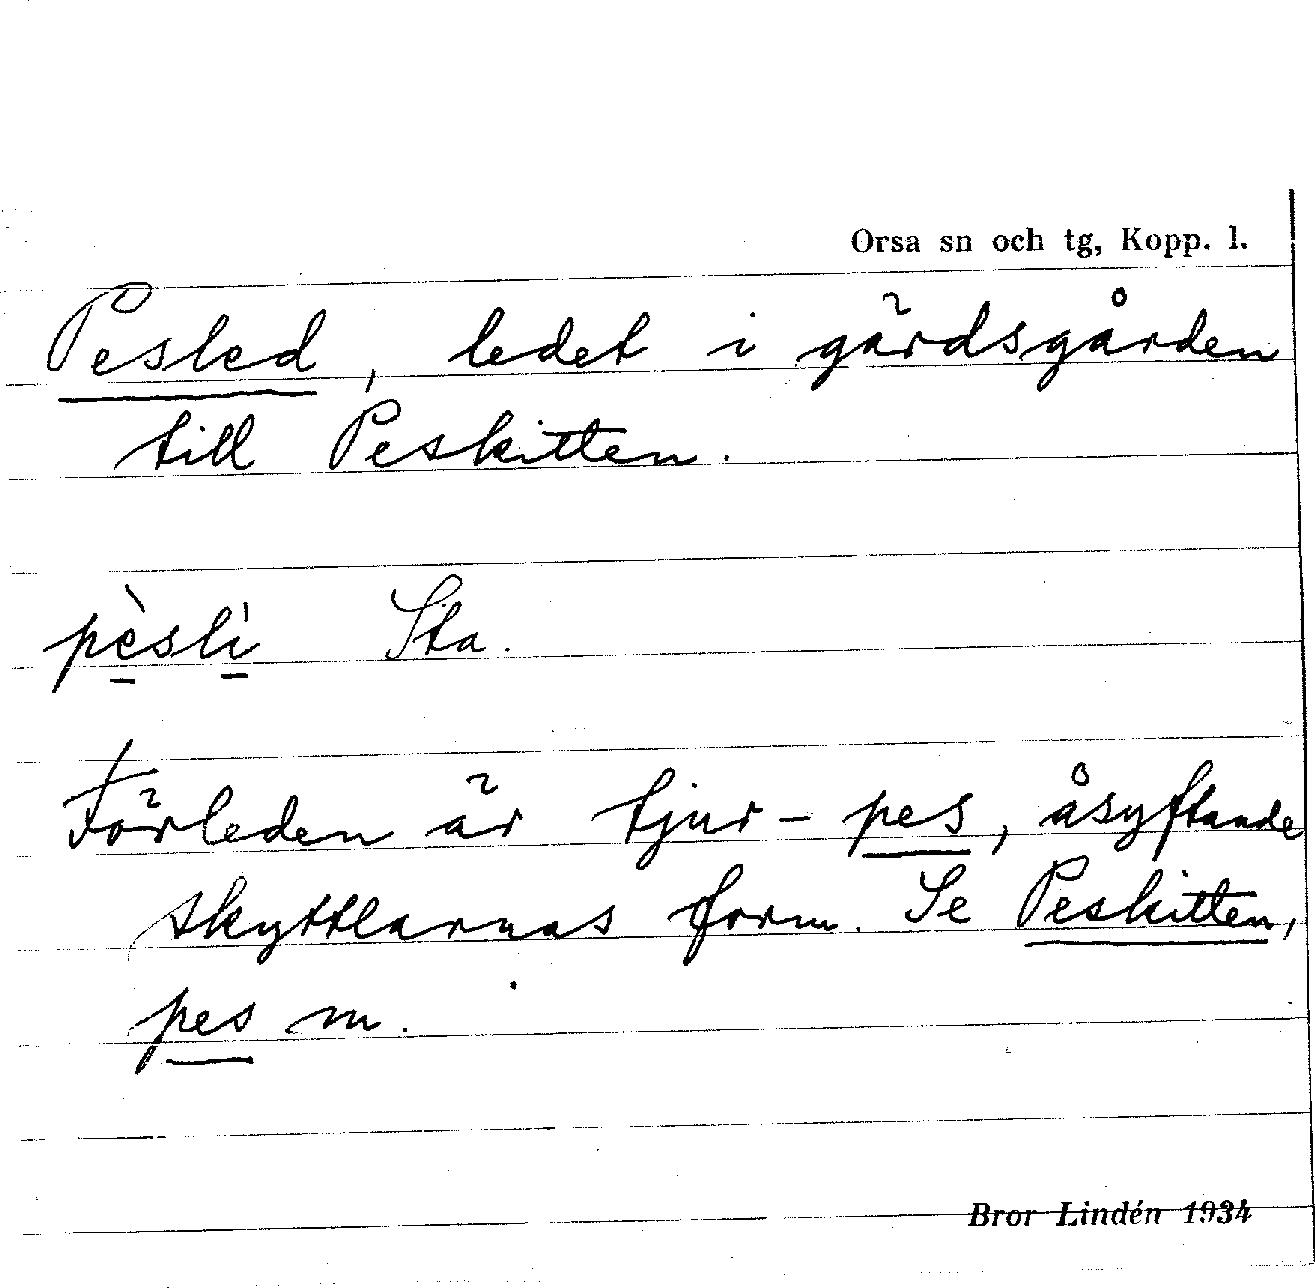 Orsa sn och tg, Kopp. l.
Pesled, ledet i gärdsgården
till Peskitten.
pèsli Sta.
Förleden är tjur-pes, åsyftande
skyttlarnas form. Se Peskitten,
pes m.
Bror Lindén 1934